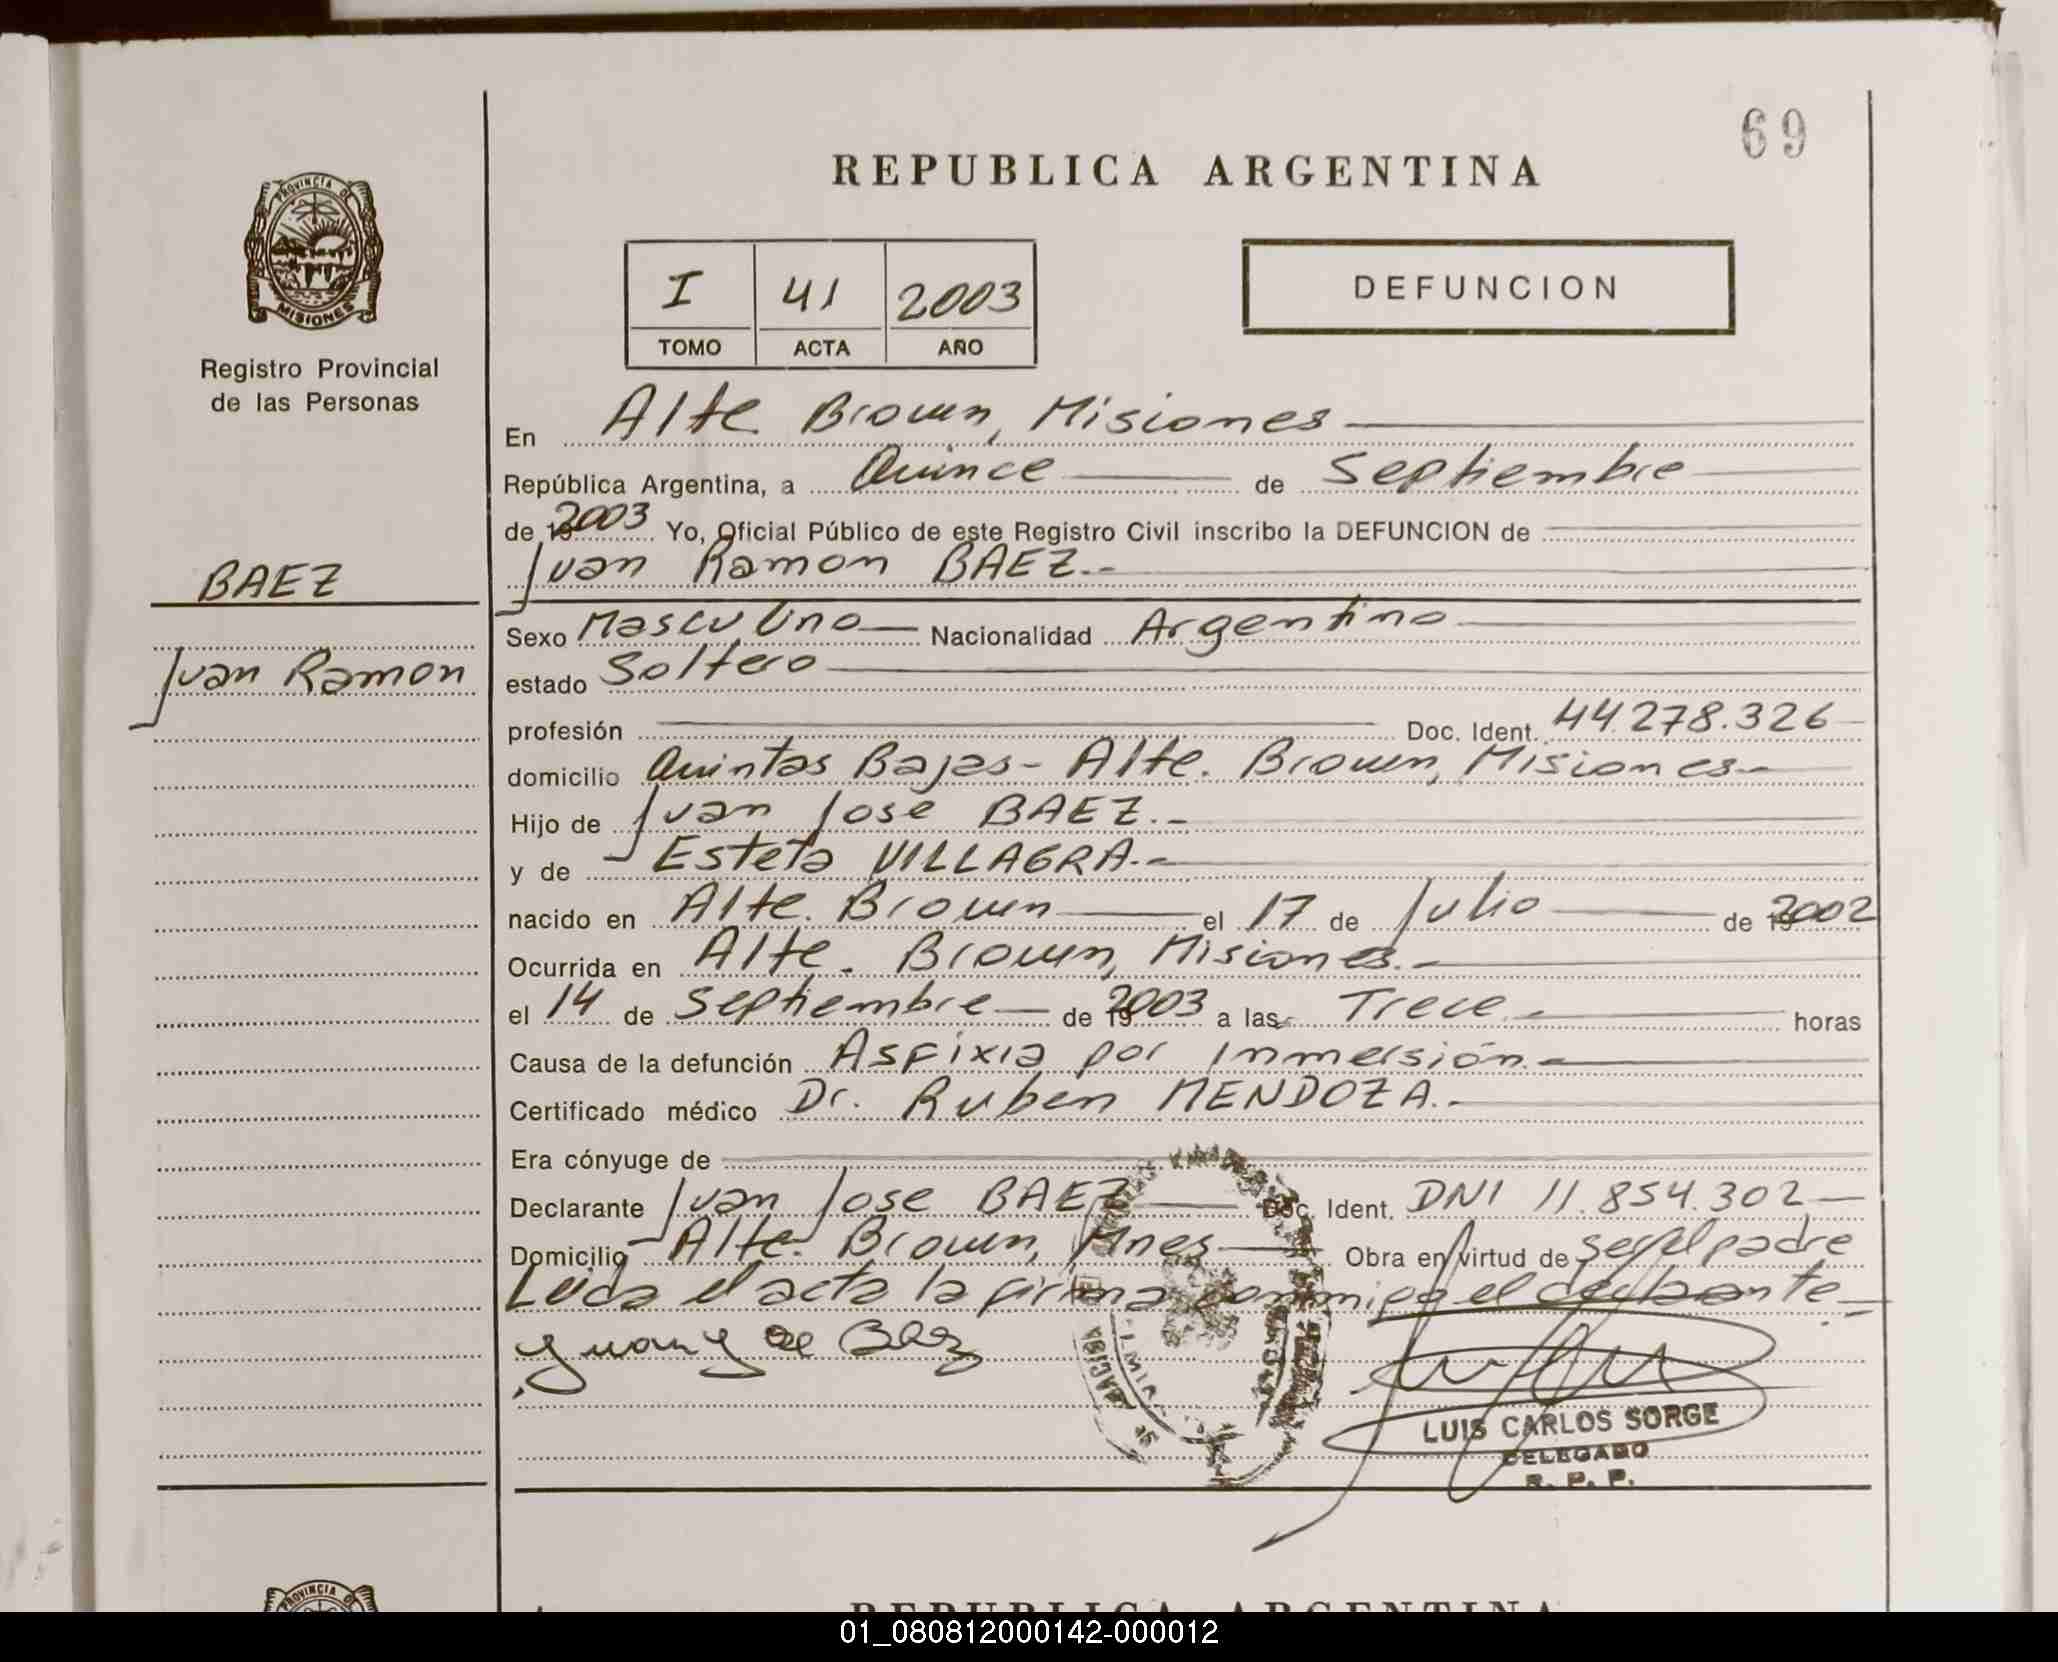 69
REPUBLICA ARGENTINA
PROVINCIA DE
MISIONES
Registro Provincial
de las Personas
I 41 2003
TOMO ACTA AÑO
DEFUNCION
En Alte. Brown, Misiones
República Argentina, a Quince de Septiembre
de 19 2003 Yo, Oficial Público de este Registro Civil inscribo la DEFUNCION de
Juan Ramon BAEZ.-
BAEZ
Juan Ramon
Sexo Masculino Nacionalidad Argentino
estado Soltero
profesión Doc. Ident. 44.278.326
domicilio Quintas Bajas - Alte. Brown, Misiones
Hijo de Juan Jose BAEZ.-
y de Estela VILLAGRA.-
nacido en Alte. Brown el 17 de Julio de 19 2002
Ocurrida en Alte. Brown, Misiones.-
el 14 de Septiembre de 19 2003 a las Trece horas
Causa de la defunción Asfixia por Inmersión.-
Certificado médico Dr. Ruben MENDOZA.-
Era cónyuge de
Declarante Juan Jose BAEZ Doc. Ident. DNI 11.854.302
Domicilio Alte. Brown, Mnes Obra en virtud de ser el padre
Leida el acta la firma conmigo el declarante.-
Juan Jose Baez
LUIS CARLOS SORGE
DELEGADO
R. P. P.
PROVINCIA DE
REPUBLICA ARGENTINA
01_080812000142-000012